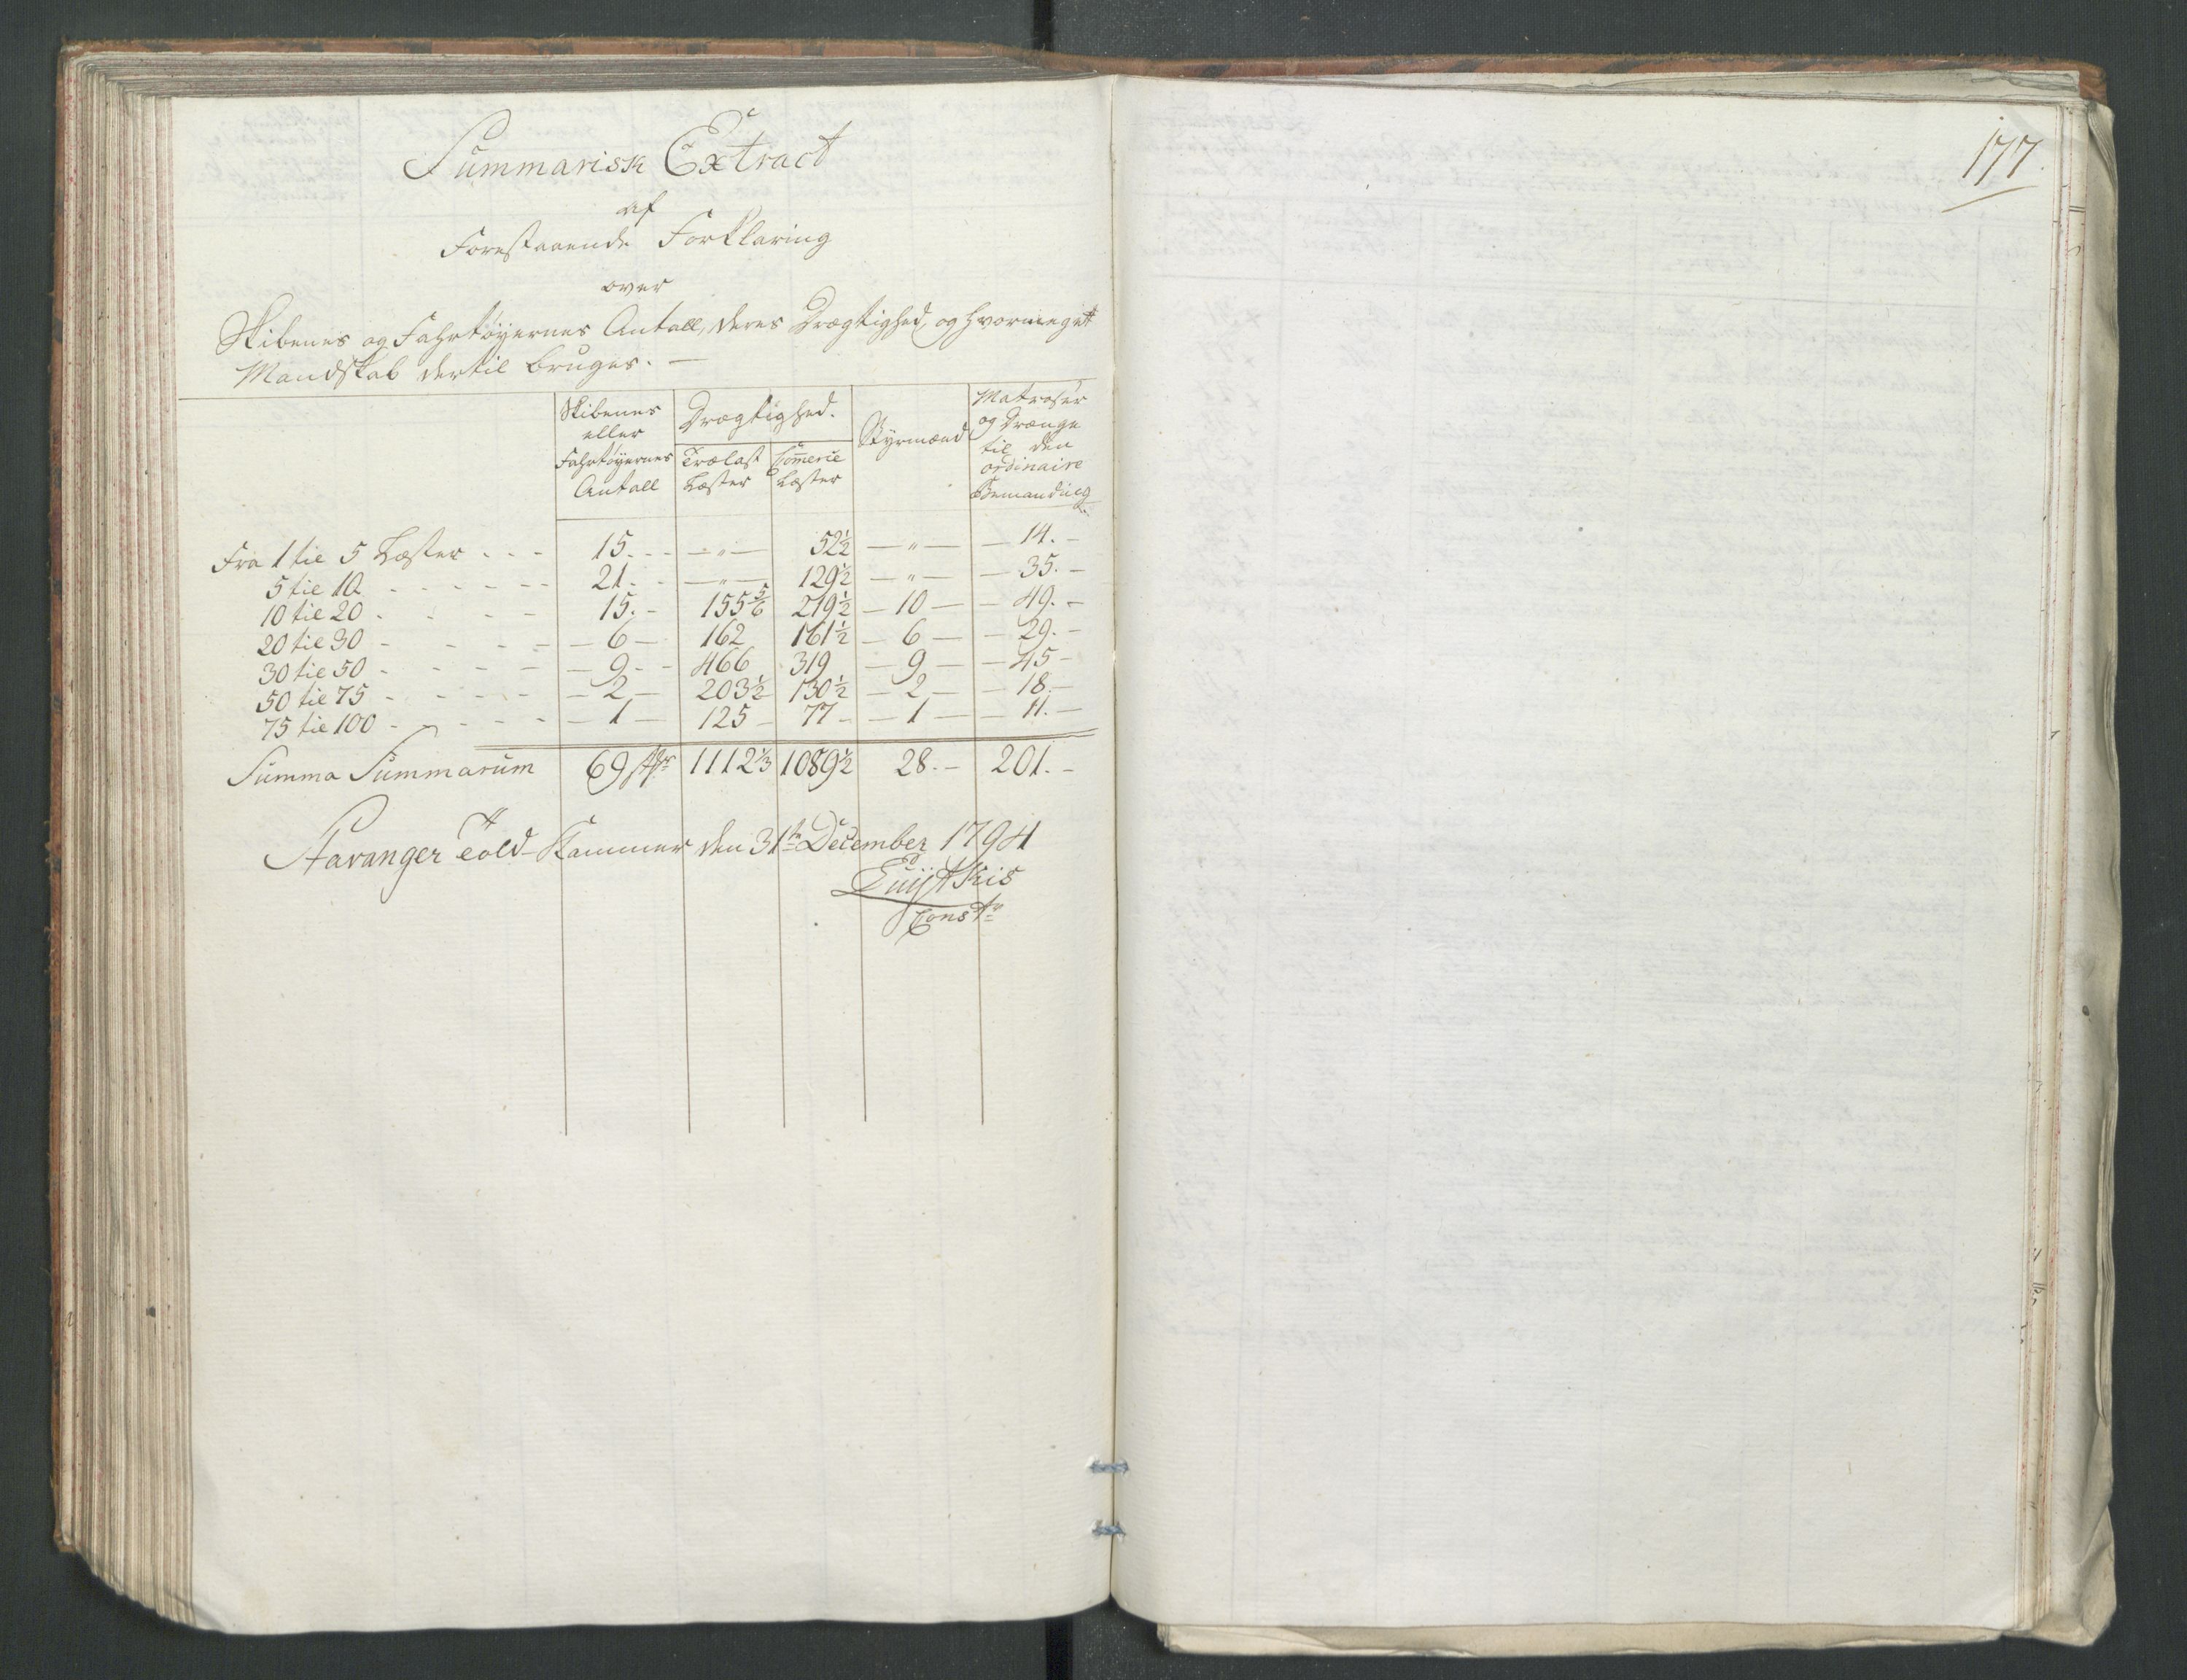 Summarisk Extract
af
Forestaaende Forklaring
over
Skibenes og Fahrtøyernes Antall, deres Drægtighed, og hvormeget
Mandskab dertil bruges. —
Skibenes eller Fahrtøyernes Antall | Drægtighed. Trælast Læster | Commerce Læster | Styrmænd | Matroser og Drænge til den ordinaire Bemanding
Fra 1 til 5 Læster - - - 15. - - — " — 52½ — " — — 14. —
5 til 10 - - - - - - 21. - - — " — 129½ — " — — 35. —
10 til 20 - - - - 15. - 155 5/6 219½ — 10 — — 49. —
20 til 30 - - - - — 6 — 162 161½ — 6 — — 29. —
30 til 50 - - - - - — 9 - - 466 319 — 9 — — 45 —
50 til 75 - - - - - — 2 — 203½ 130½ — 2 — — 18. —
75 til 100 - - - - - — 1 — 125 — 77 — — 1 — — 11. —
Summa Summarum 69 1112⅓ 1089½ 28. — 201. —
Stavanger Told-Kammer den 31te December 1794
Constr
177.